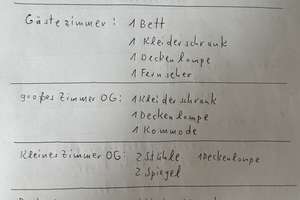 Gästezimmer: 1 Bett
1 Kleiderschrank
1 Deckenlampe
1 Fernseher
großes Zimmer OG: 1 Kleiderschrank
1 Deckenlampe
1 Kommode
Kleines Zimmer OG: 2 Stühle 1 Deckenlampe
2 Spiegel